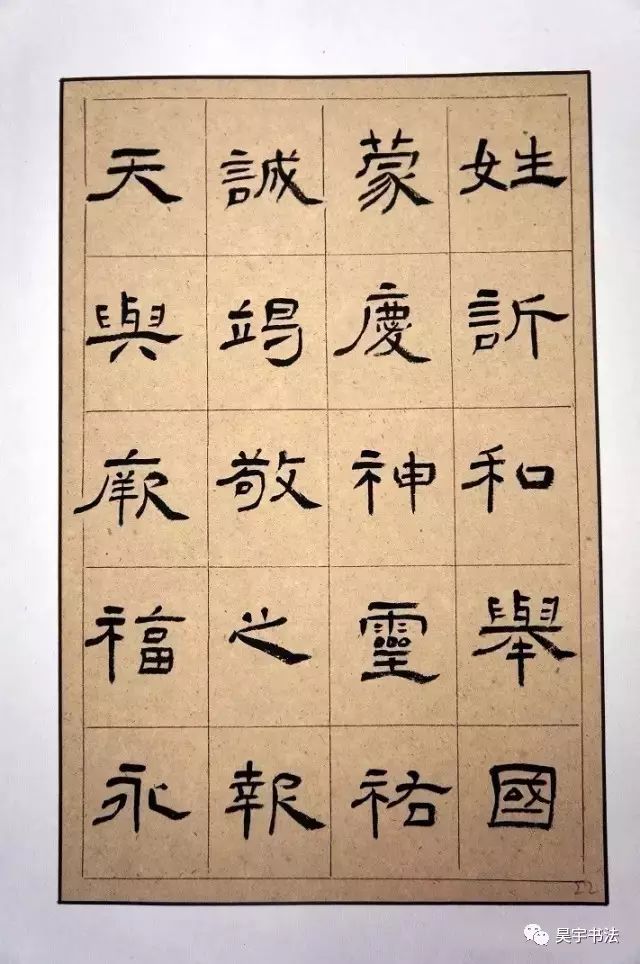 姓訢和舉國
蒙慶神靈祐
誠竭敬之報
天與厥福永
52
昊宇书法